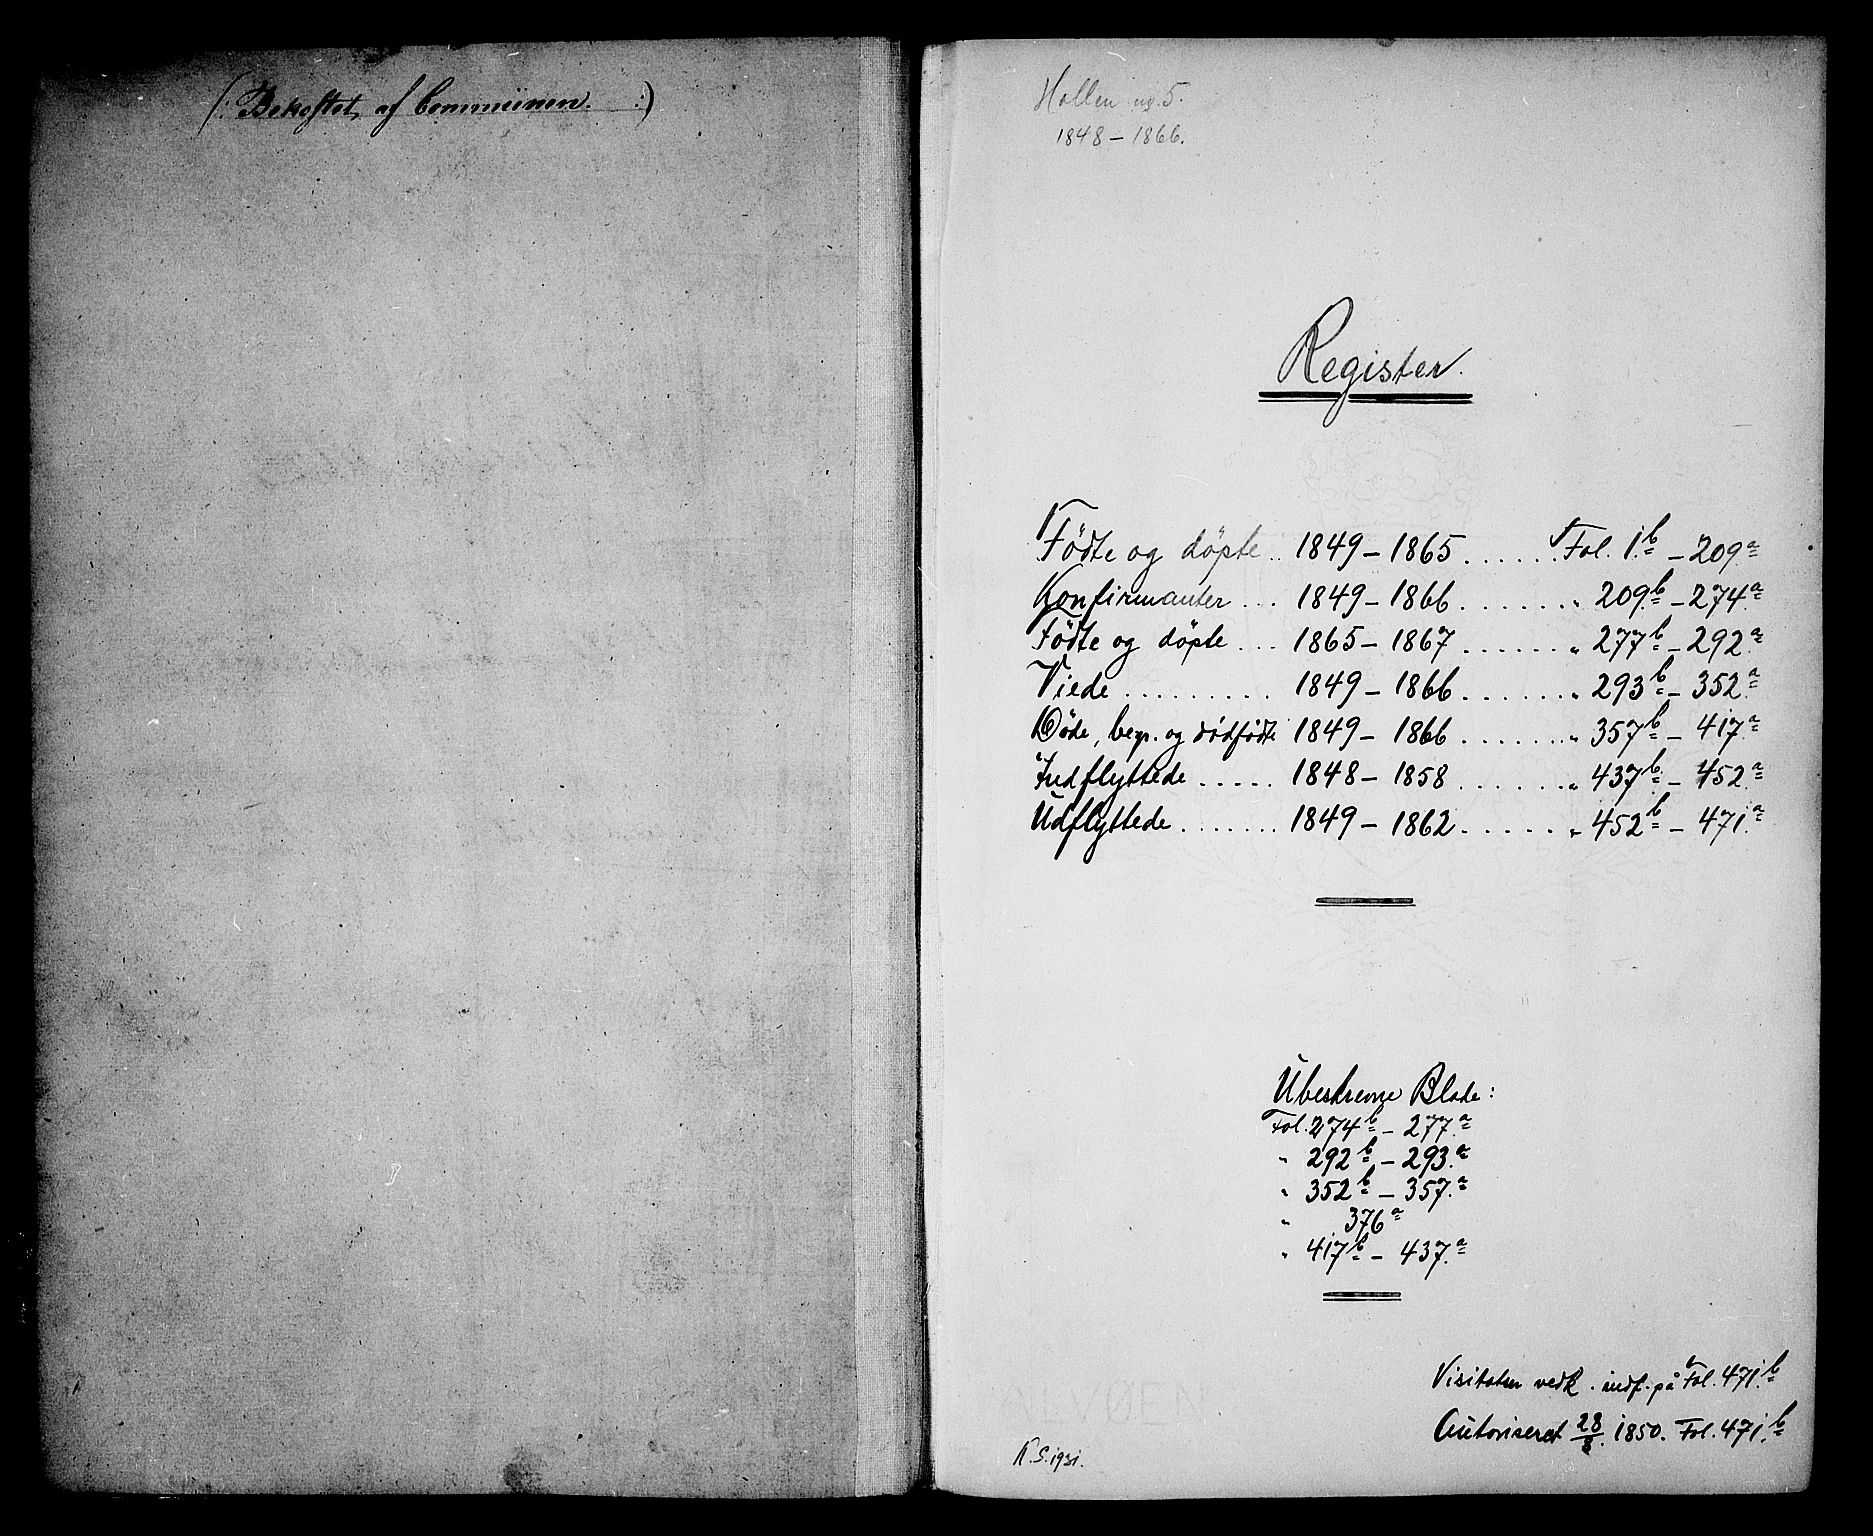 (: Bekostet af Communen. :)
Hollen no. 5.
1848 – 1866.
Register.
Fødte og døpte .. 1849 – 1865 ...... Fol. 1.b – 209.a
Konfirmanter ... 1849 – 1866 ....... " 209.b – 274.a
Fødte og døpte ... 1865 – 1867 ....... " 277.b – 292.a
Viede .......... 1849 – 1866 ....... " 293.b – 352.a
Døde, begr. og dødfødte 1849 – 1866 ....... " 357.b – 417.a
Indflyttede ..... 1848 – 1858 ....... " 437.b – 452.a
Udflyttede ....... 1849 – 1862 ...... " 452.b – 471.a
Ubeskrevne Blade:
Fol. 274.b – 277.a
" 292.b – 293.a
" 352.b – 357.a
" 376a
" 417.b – 437.a
Visitatsen vedk. indf. på Fol. 471.b
Autoriseret 28/8. 1850. Fol. 471.b
K. S. 1931.